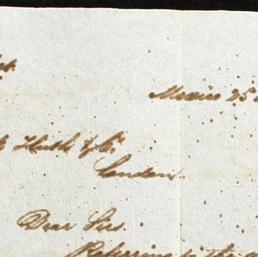 Mexico 25
Huth & Co.
London.
Dear Sirs.
Referring to the